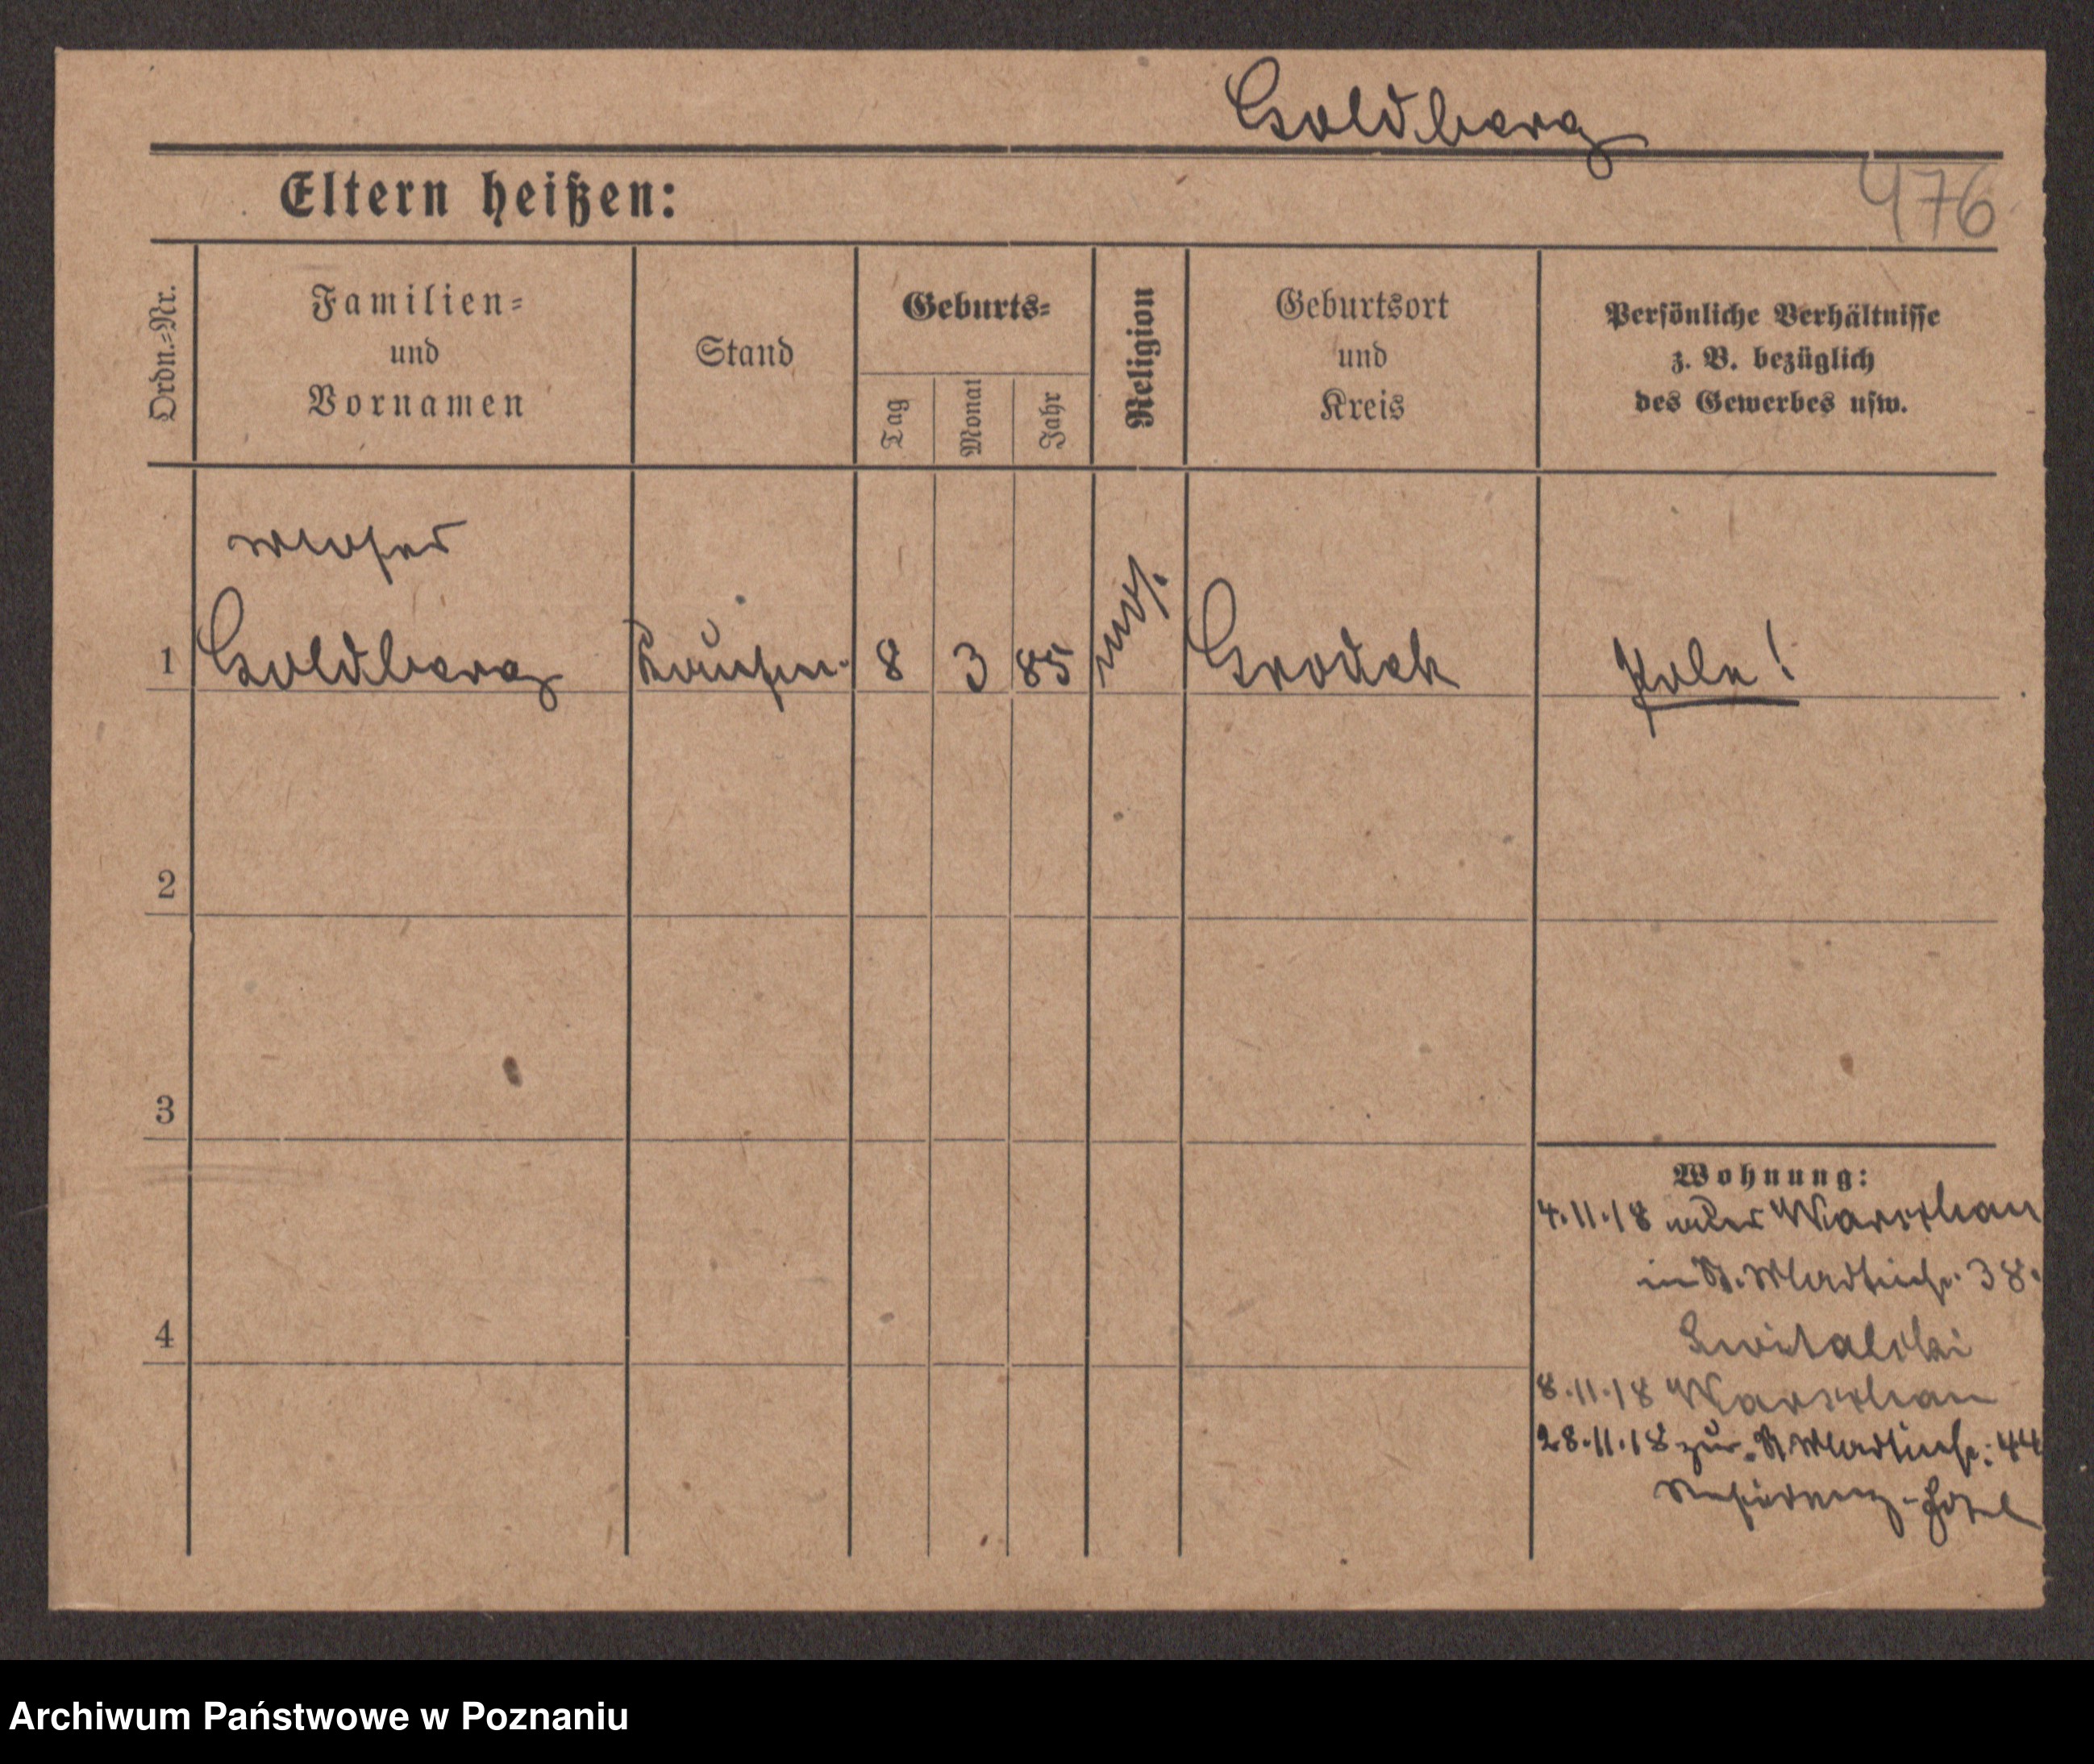 Goldberg
Eltern heißen:
476
Ordn.=Nr.
Familien=
und
Vornamen
Stand
Geburts=
Tag
Monat
Jahr
Religion
Geburtsort
und
Kreis
Persönliche Verhältnisse
z. B. bezüglich
des Gewerbes usw.
Moses
1 Goldberg Kaufm. 8 3 85 mos. Grodek Pole!
2
3
4
Wohnung:
4.11.18 Warschau
in St. Martinstr. 38.
Switalski
8.11.18 Warschau
28.11.18 zur. St Martinstr. 44
Residenz-Hotel
Archiwum Państwowe w Poznaniu